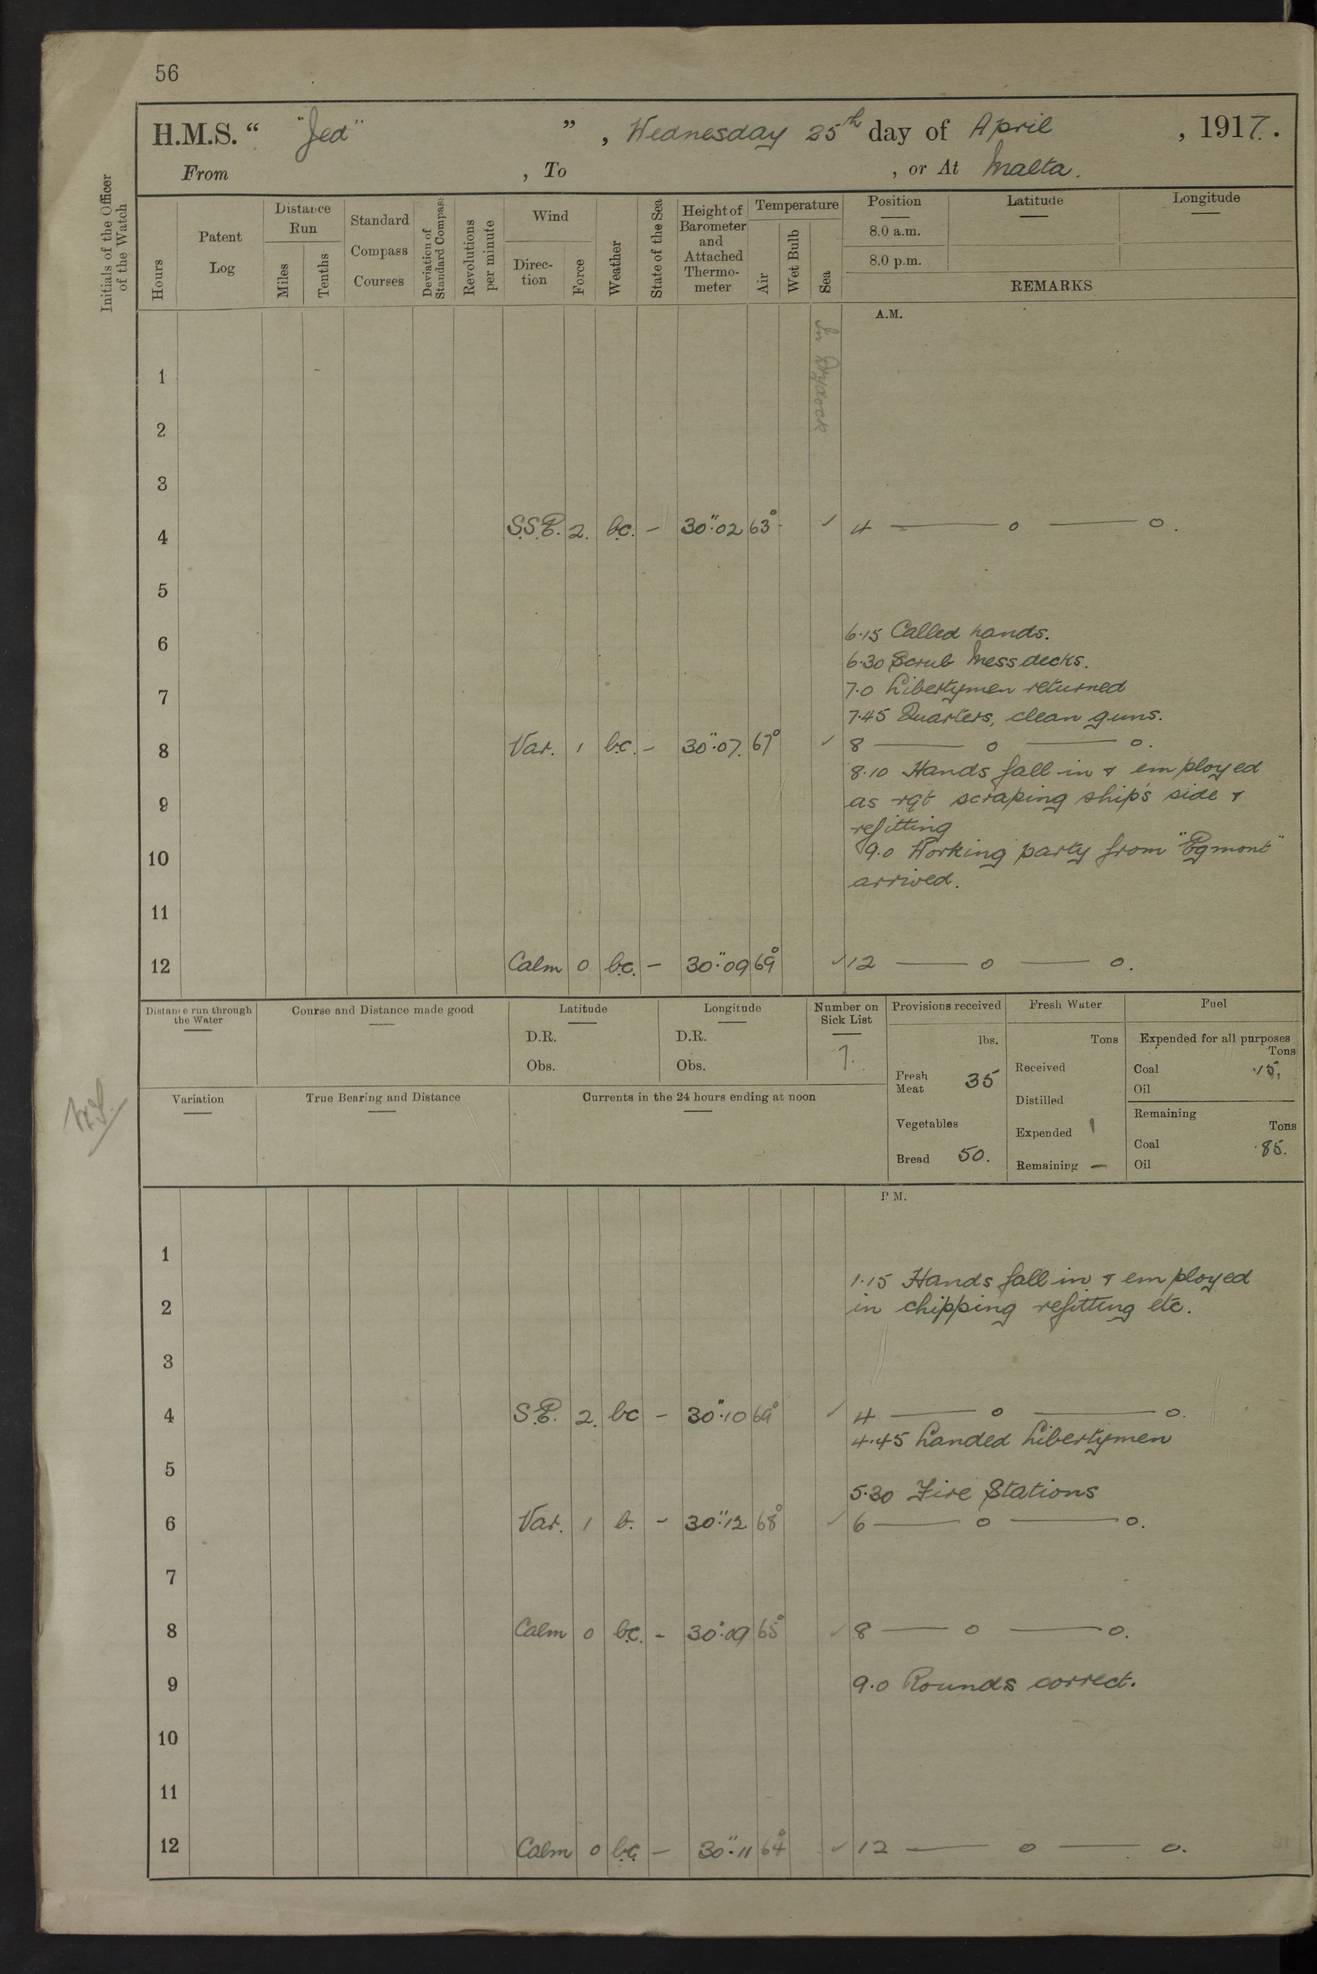 56
H.M.S. “ "Jed" ” , Wednesday 25th day of April , 1917.
From , To , or At Malta.
Initials of the Officer of the Watch
Hours
Patent Log
Distance Run
Miles
Tenths
Standard Compass Courses
Deviation of Standard Compass
Revolutions per minute
Wind
Direction
Force
Weather
State of the Sea
Height of Barometer and Attached Thermometer
Temperature
Air
Wet Bulb
Sea
Position
8.0 a.m.
8.0 p.m.
Latitude
Longitude
REMARKS
A.M.
In Drydock
1
2
3
4 S.S.E. 2. b.c. – 30".02 63° ✓ 4 —— o —— o.
5
6 6.15 Called hands.
6.30 Scrub Mess decks.
7 7.0 Libertymen returned
7.45 Quarters, clean guns.
8 Var. 1 b.c. – 30".07. 67° ✓ 8 —— o —— o.
8.10 Hands fall in & employed
9 as rqt scraping ship's side &
refitting
10 9.0 Working party from "Egmont"
arrived.
11
12 Calm 0 b.c. – 30".09 69° ✓ 12 —— o —— o.
Distance run through the Water
Course and Distance made good
Latitude
D.R.
Obs.
Longitude
D.R.
Obs.
Number on Sick List
7.
Provisions received
lbs.
Fresh Meat 35
Vegetables
Bread 50.
Fresh Water
Tons
Received
Distilled
Expended 1
Remaining –
Fuel
Expended for all purposes
Tons
Coal .15,
Oil
Remaining
Tons
Coal .85.
Oil
Variation
True Bearing and Distance
Currents in the 24 hours ending at noon
P M.
1
1.15 Hands fall in & employed
2 in chipping refitting etc.
3
4 S.E. 2. bc – 30".10 69° ✓ 4 —— o —— o.
4.45 Landed Libertymen
5
5.30 Fire Stations
6 Var. 1 b. – 30".12 68° ✓ 6 —— o —— o.
7
8 Calm 0 b.c. – 30".09 65° ✓ 8 —— o —— o.
9 9.0 Rounds correct.
10
11
12 Calm 0 b.c. – 30".11 64° ✓ 12 —— o —— o.